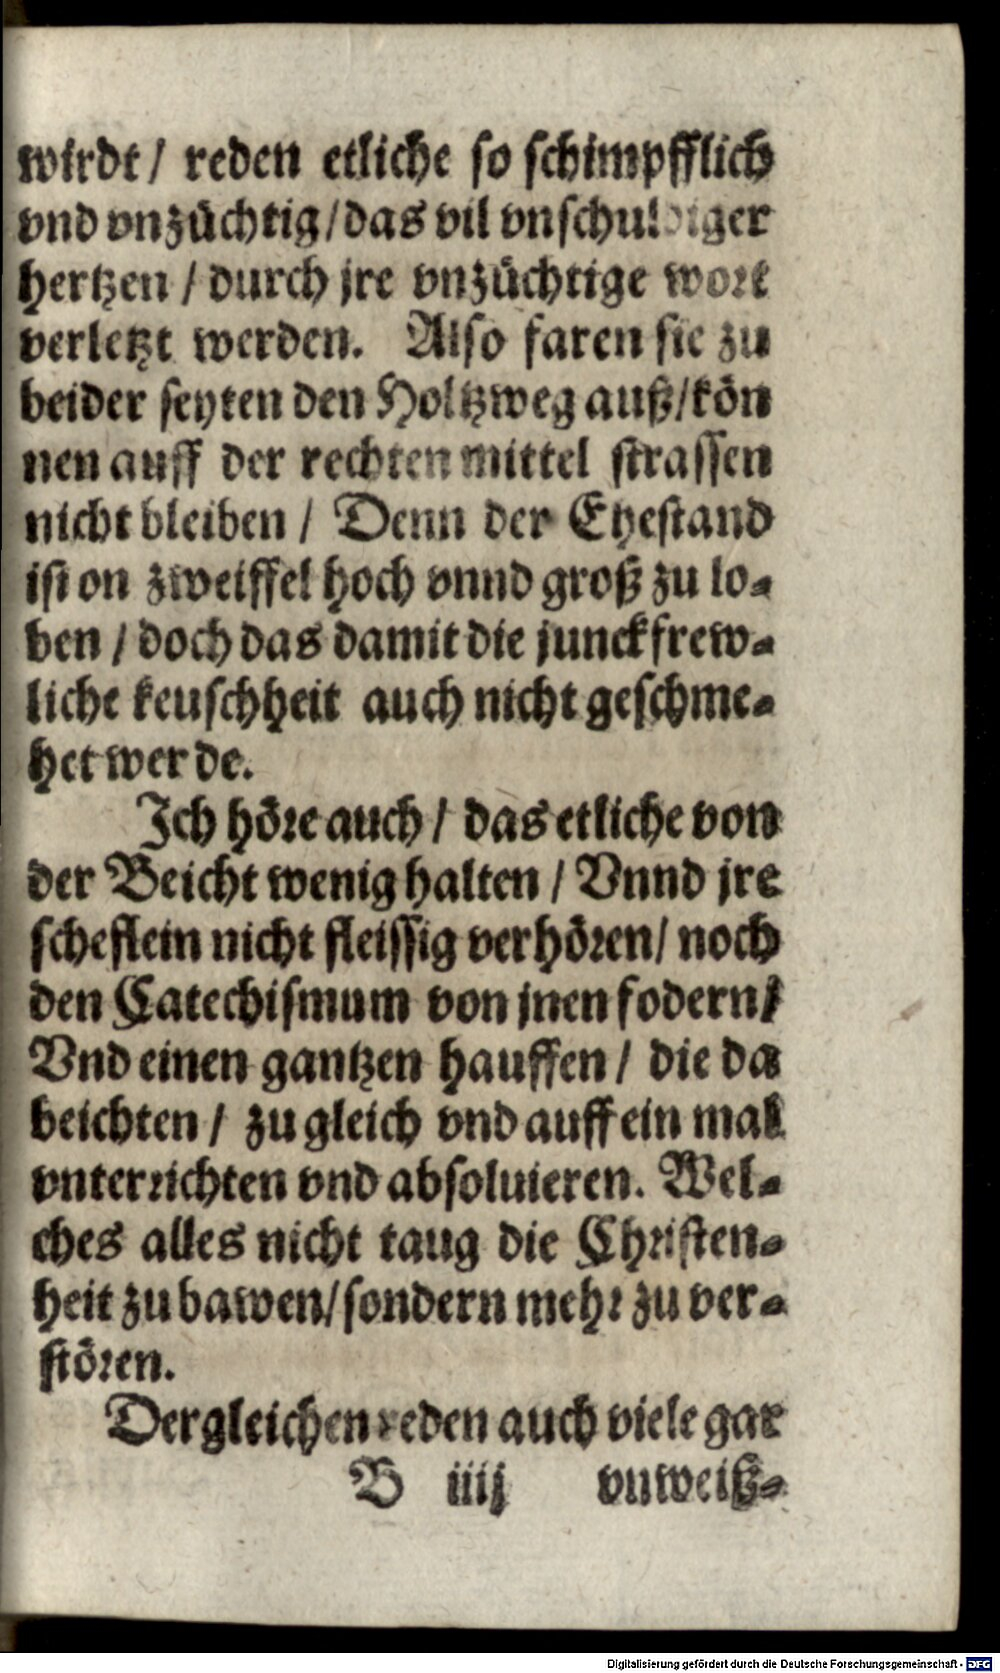 wirdt / reden etliche so schimpfflich
vnd vnzüchtig / das vil vnschuldiger
hertzen / durch jre vnzüchtige wort
verletzt werden. Also faren sie zu
beider seyten den Holtzweg auß / kön
nen auff der rechten mittel strassen
nicht bleiben / Denn der Ehestand
ist on zweiffel hoch vnnd groß zu lo-
ben / doch das damit die junckfrew-
liche keuschheit auch nicht geschme-
het werde.
Ich höre auch / das etliche von
der Beicht wenig halten / Vnnd jre
scheflein nicht fleissig verhören / noch
den Catechismum von jnen fodern /
Vnd einen gantzen hauffen / die da
beichten / zu gleich vnd auff ein mal
vnterrichten vnd absoluieren. Wel-
ches alles nicht taug die Christen-
heit zu bawen / sondern mehr zu ver-
stören.
Dergleichen reden auch viele gar
B iiij vnweiß-
Digitalisierung gefördert durch die Deutsche Forschungsgemeinschaft - DFG